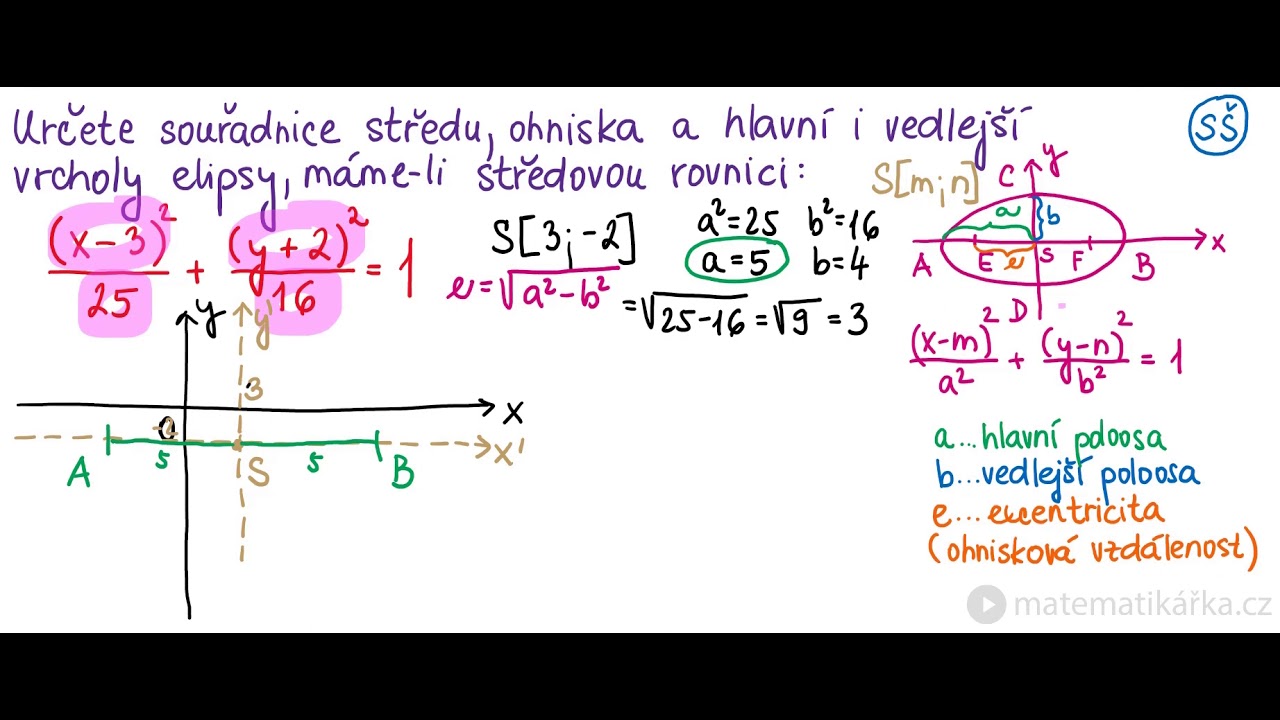 Určete souřadnice středu, ohniska a hlavní i vedlejší
vrcholy elipsy, máme-li středovou rovnici:
SŠ
(x-3)²/25 + (y+2)²/16 = 1
S[3;-2]
e = √a²-b² = √25-16 = √9 = 3
a²=25 b²=16
a=5 b=4
S[m;n]
y
C
a b
A E e S F B x
D
(x-m)²/a² + (y-n)²/b² = 1
a...hlavní poloosa
b...vedlejší poloosa
e...excentricita
(ohnisková vzdálenost)
y y'
3
x
-2
x'
A 5 S 5 B
matematikářka.cz